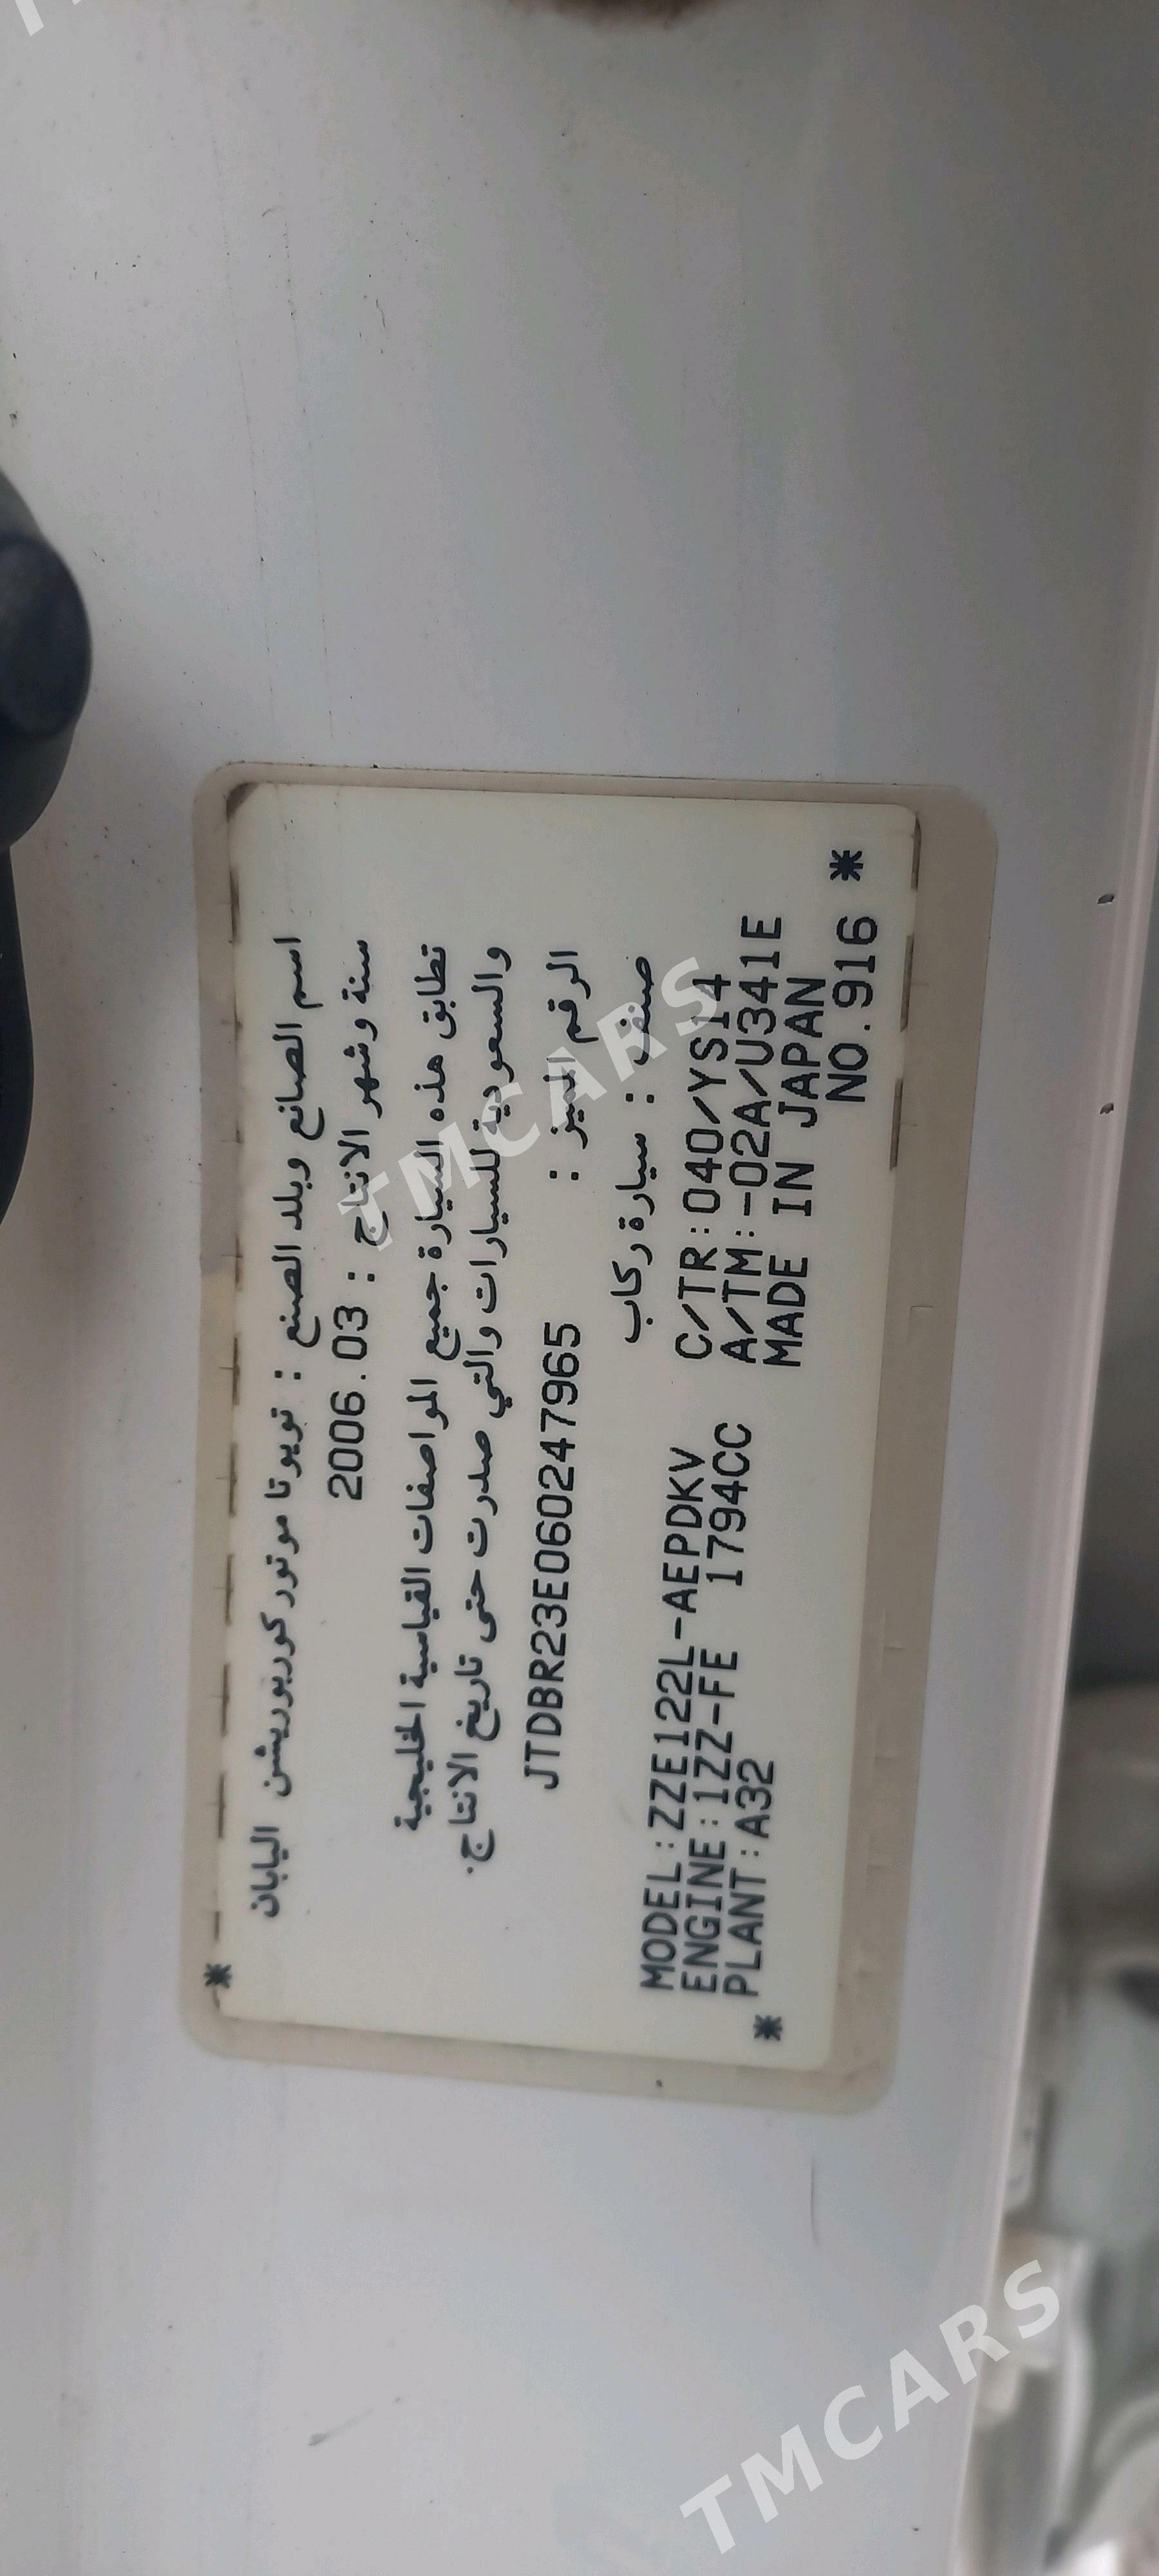 *
اسم الصانع وبلد الصنع : تويوتا موتور كوربوريشن اليابان
سنة وشهر الانتاج : 2006.03
تطابق هذه السيارة جميع المواصفات القياسية الخليجية
والسعودية للسيارات والتي صدرت حتى تاريخ الانتاج.
الرقم المميز : JTDBR23E060247965
صنف : سيارة ركاب
MODEL:ZZE122L-AEPDKV C/TR:040/YS14
ENGINE:1ZZ-FE 1794CC A/TM:-02A/U341E
PLANT:A32 MADE IN JAPAN
* NO.916 *
TMCARS
TMCARS